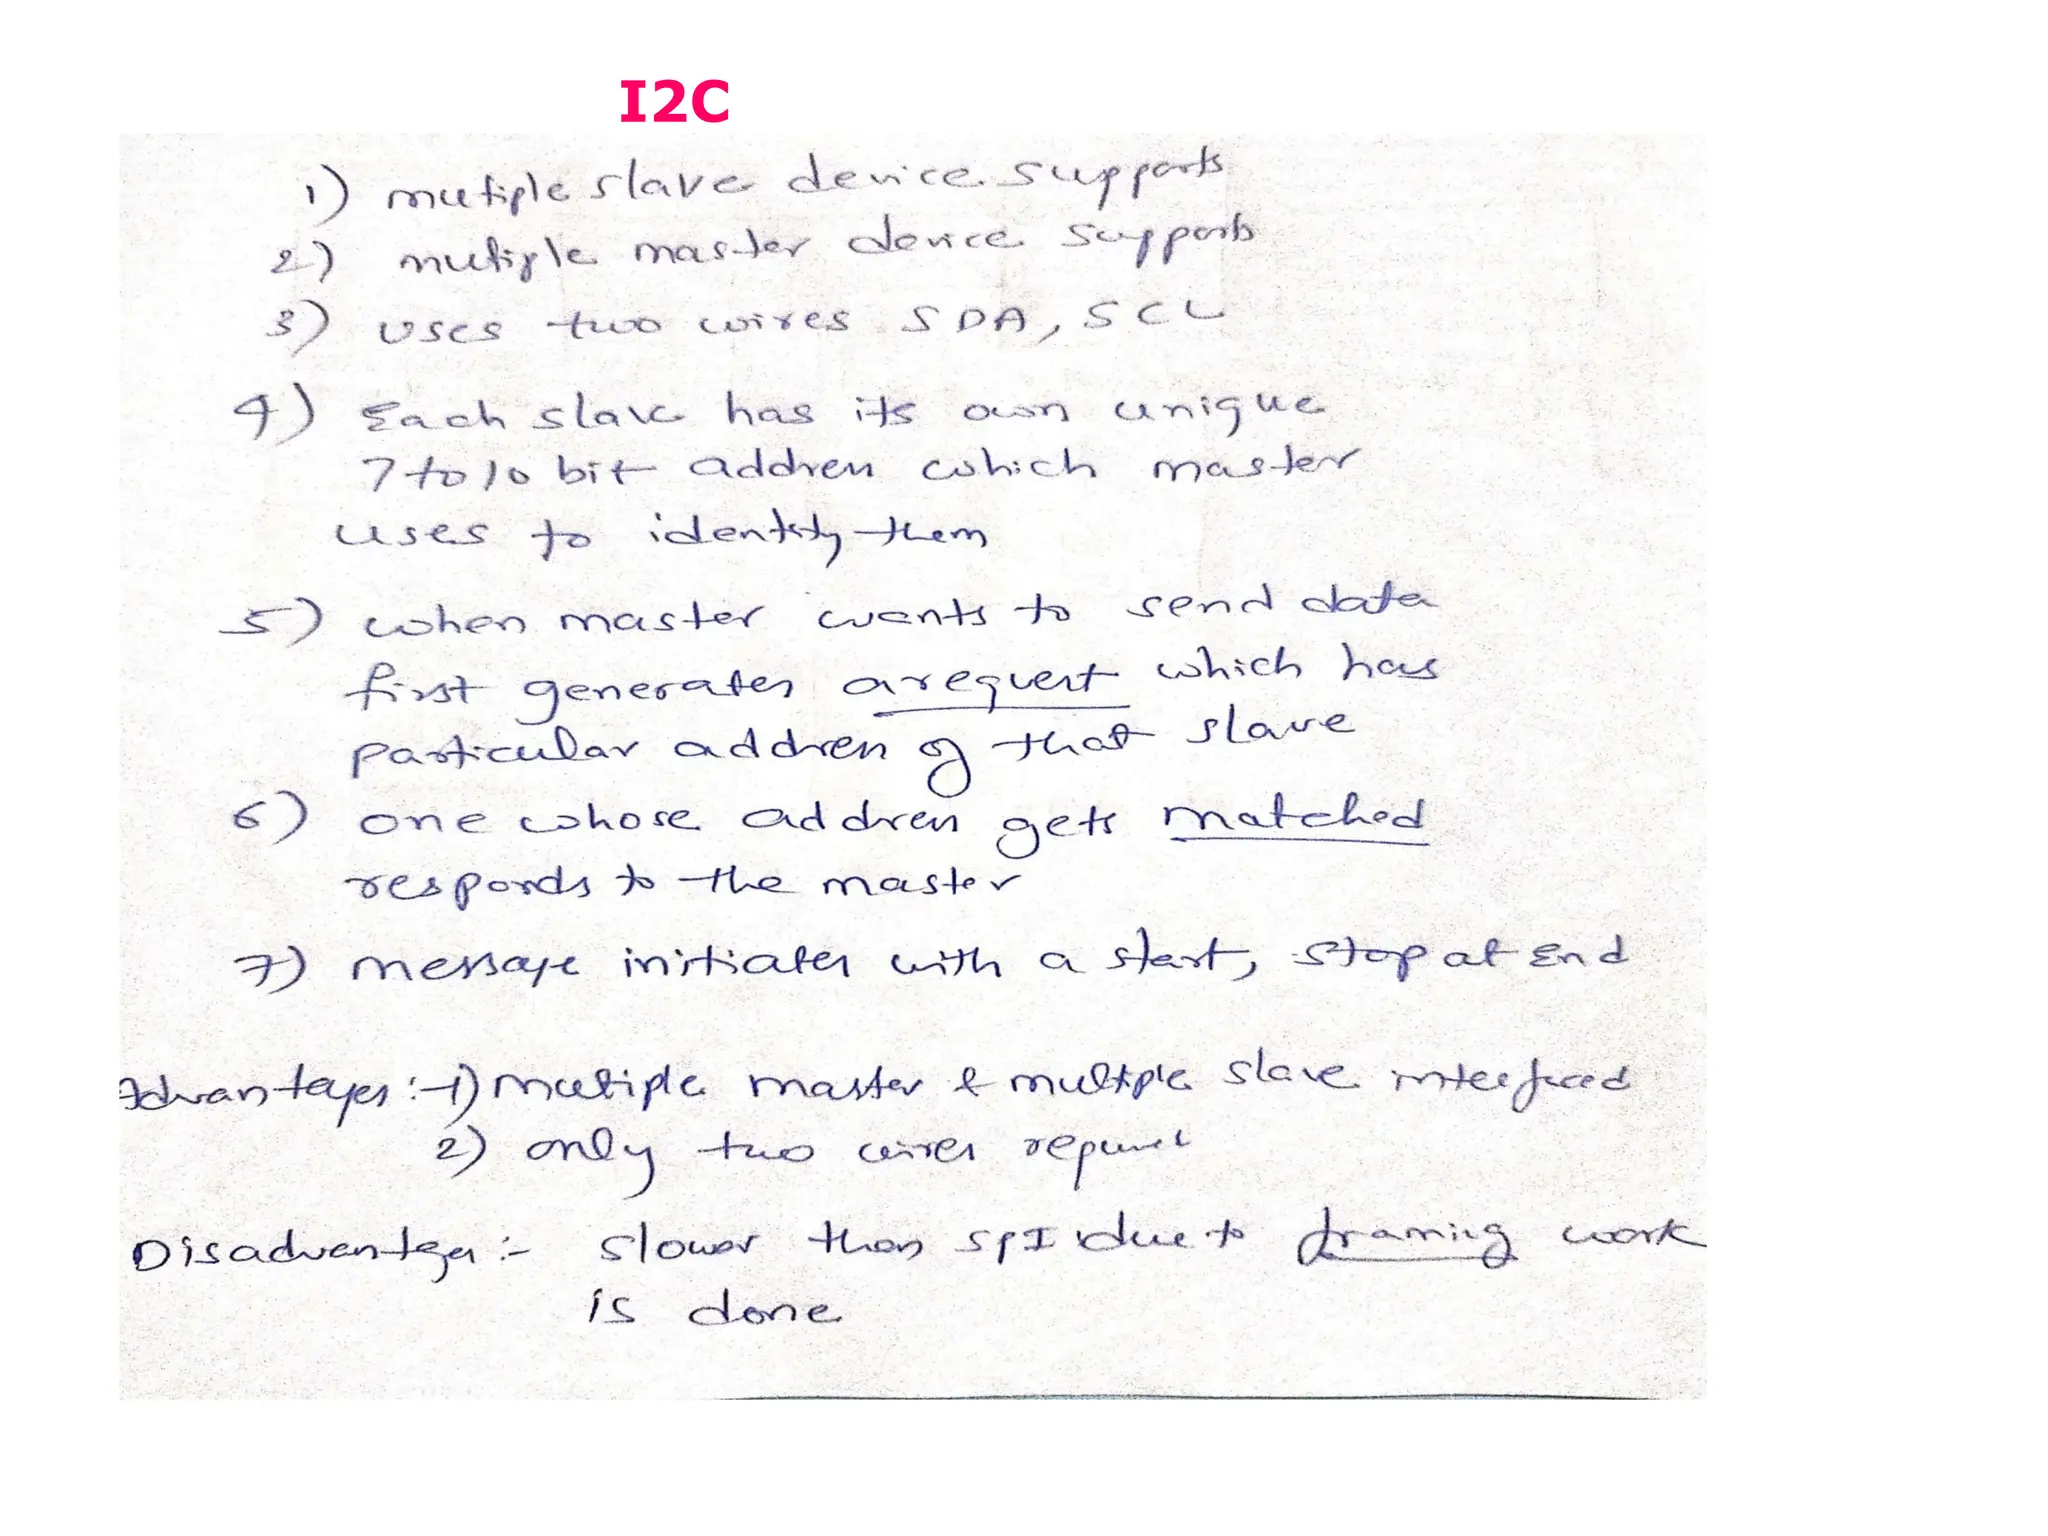 I2C
1) mutiple slave device supports
2) mutiple master device supports
3) uses two wires SDA, SCL
4) Each slave has its own unique
7 to 10 bit address which master
uses to identity them
5) when master wants to send data
first generates a request which has
particular address of that slave
6) one whose address gets matched
responds to the master
7) message initiates with a start, stop at End
Advantages :- 1) mutiple master & multiple slave interfaced
2) only two wires required
Disadvantages :- slower than SPI due to framing work
is done